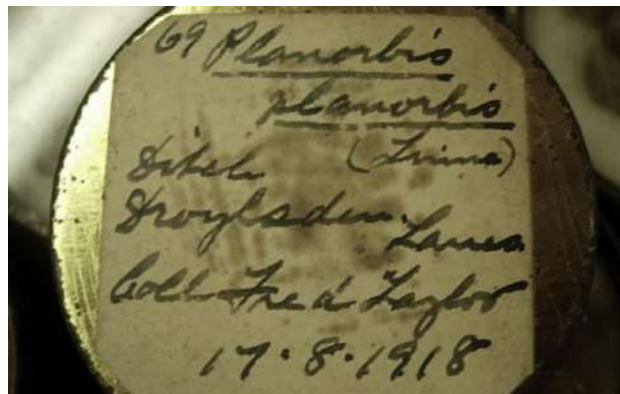 69 Planorbis
planorbis
(Linne)
Ditch
Droylsden.
Lancs
Coll Fred Taylor
17.8.1918